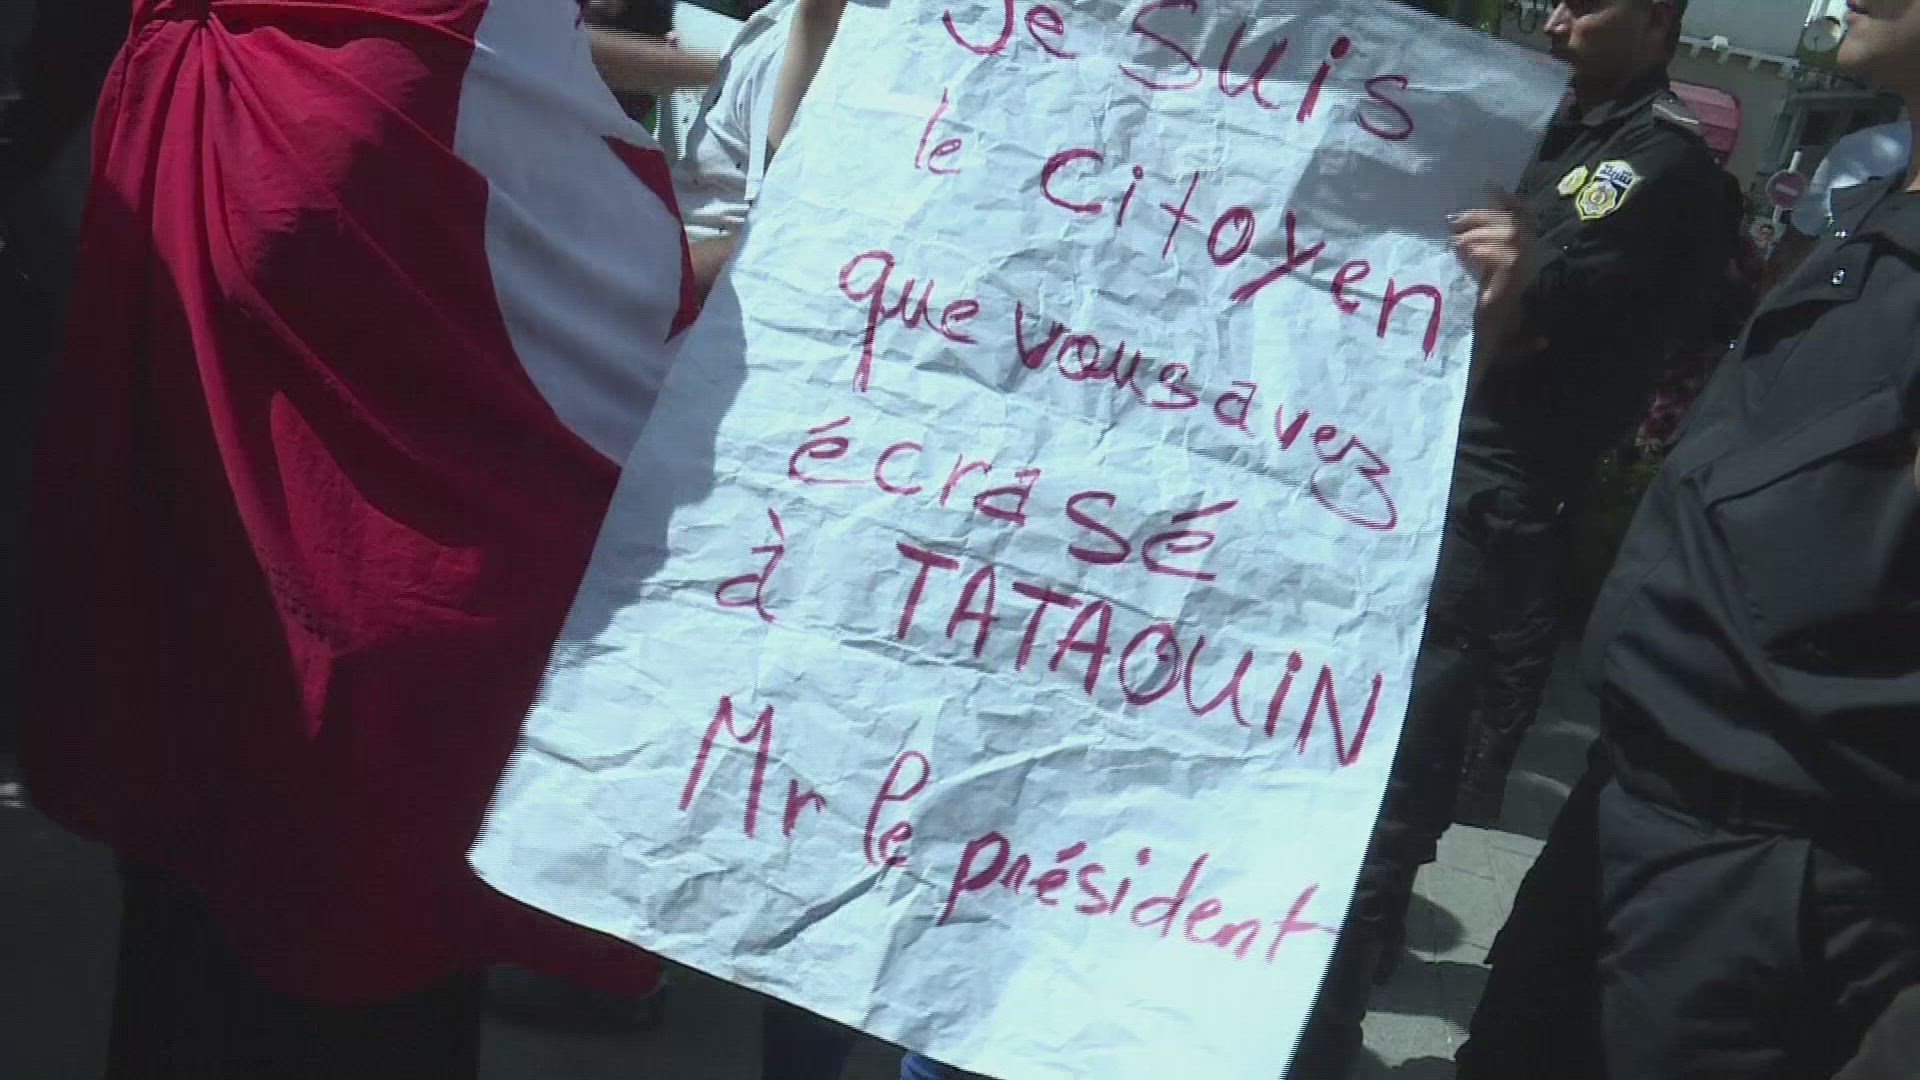 Je suis
le citoyen
que vous avez
écrasé
à TATAOUiN
Mr le président